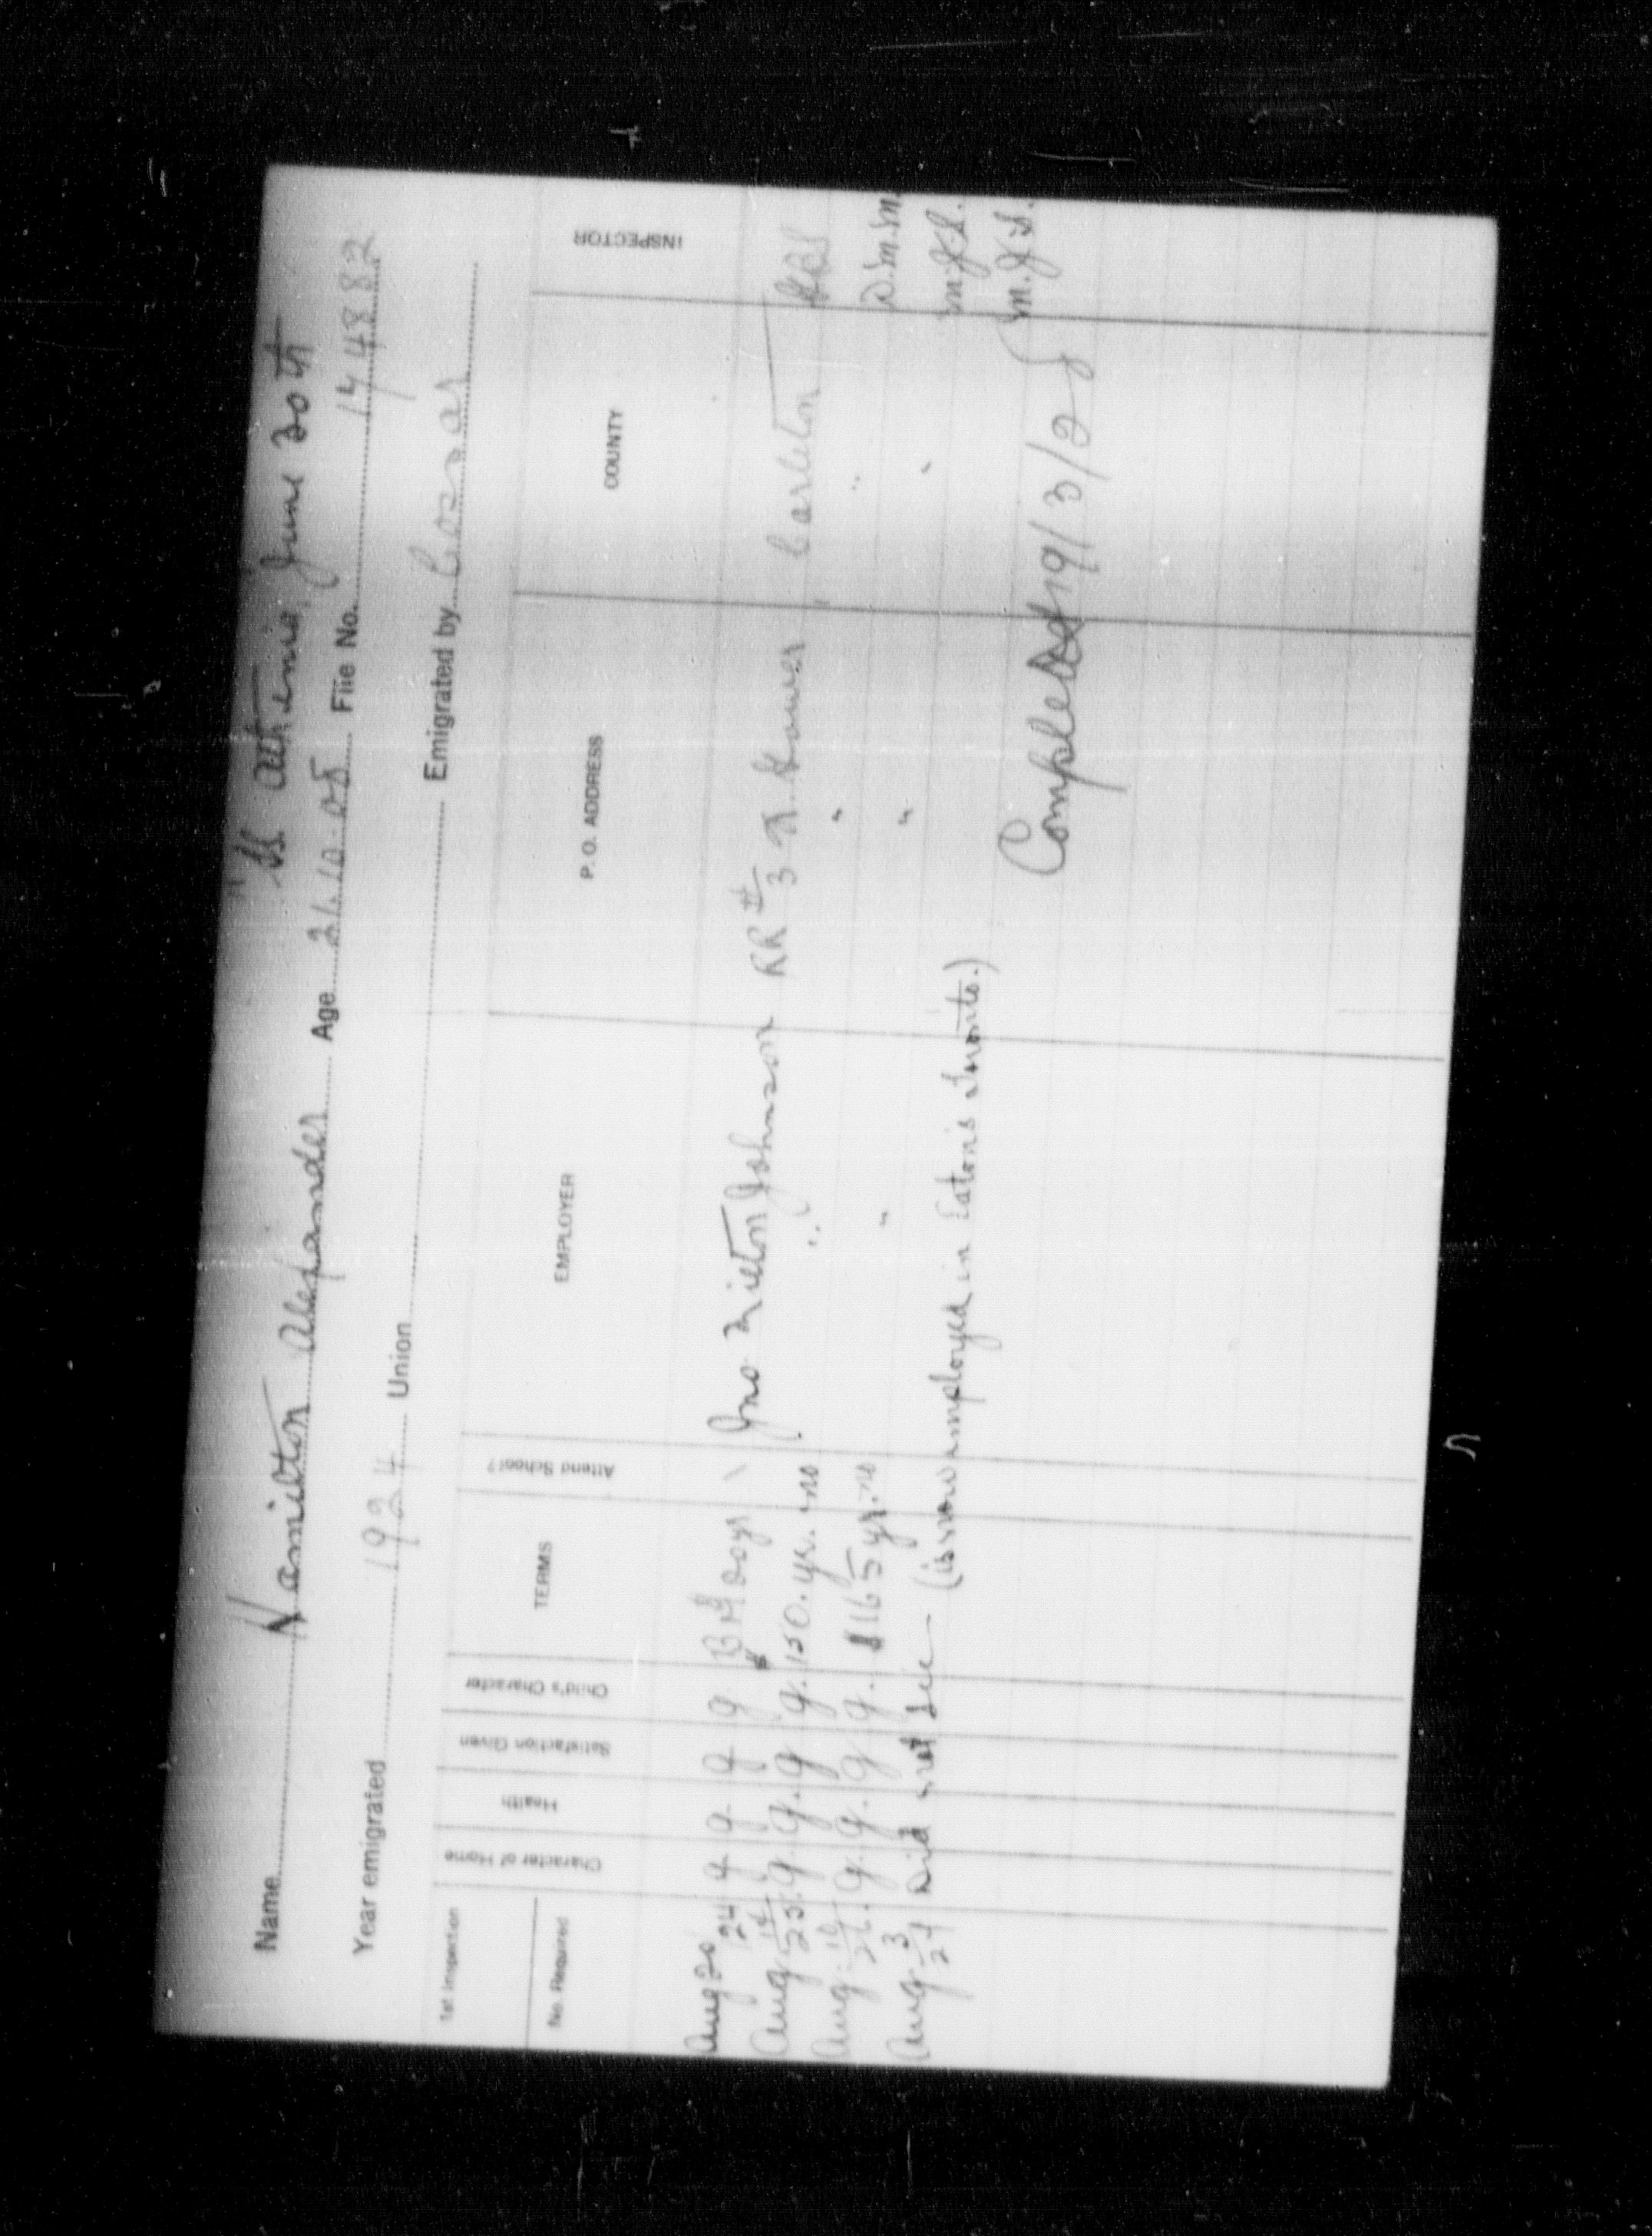 SS Athenia June 20th
Name Hamilton Alexander Age 26.10.05 File No. 144882
Year emigrated 1924 Union Emigrated by Cossar
1st Inspection
No. Required
Character of Home
Health
Satisfaction Given
Child's Character
TERMS
Attend School?
EMPLOYER
P.O. ADDRESS
COUNTY
INSPECTOR
Aug 20 24 g g g g Jno Milton Johnson RR #3 Carleton
Aug g. g. g g. $150. yr. no " " " D.M.M.
Aug 26. g. g. g g. $165 yr. no " " " M.J.S.
Aug 3 27 Did not see (is now employed in Eaton's Toronto.) M.J.S.
Completed 19/3/28